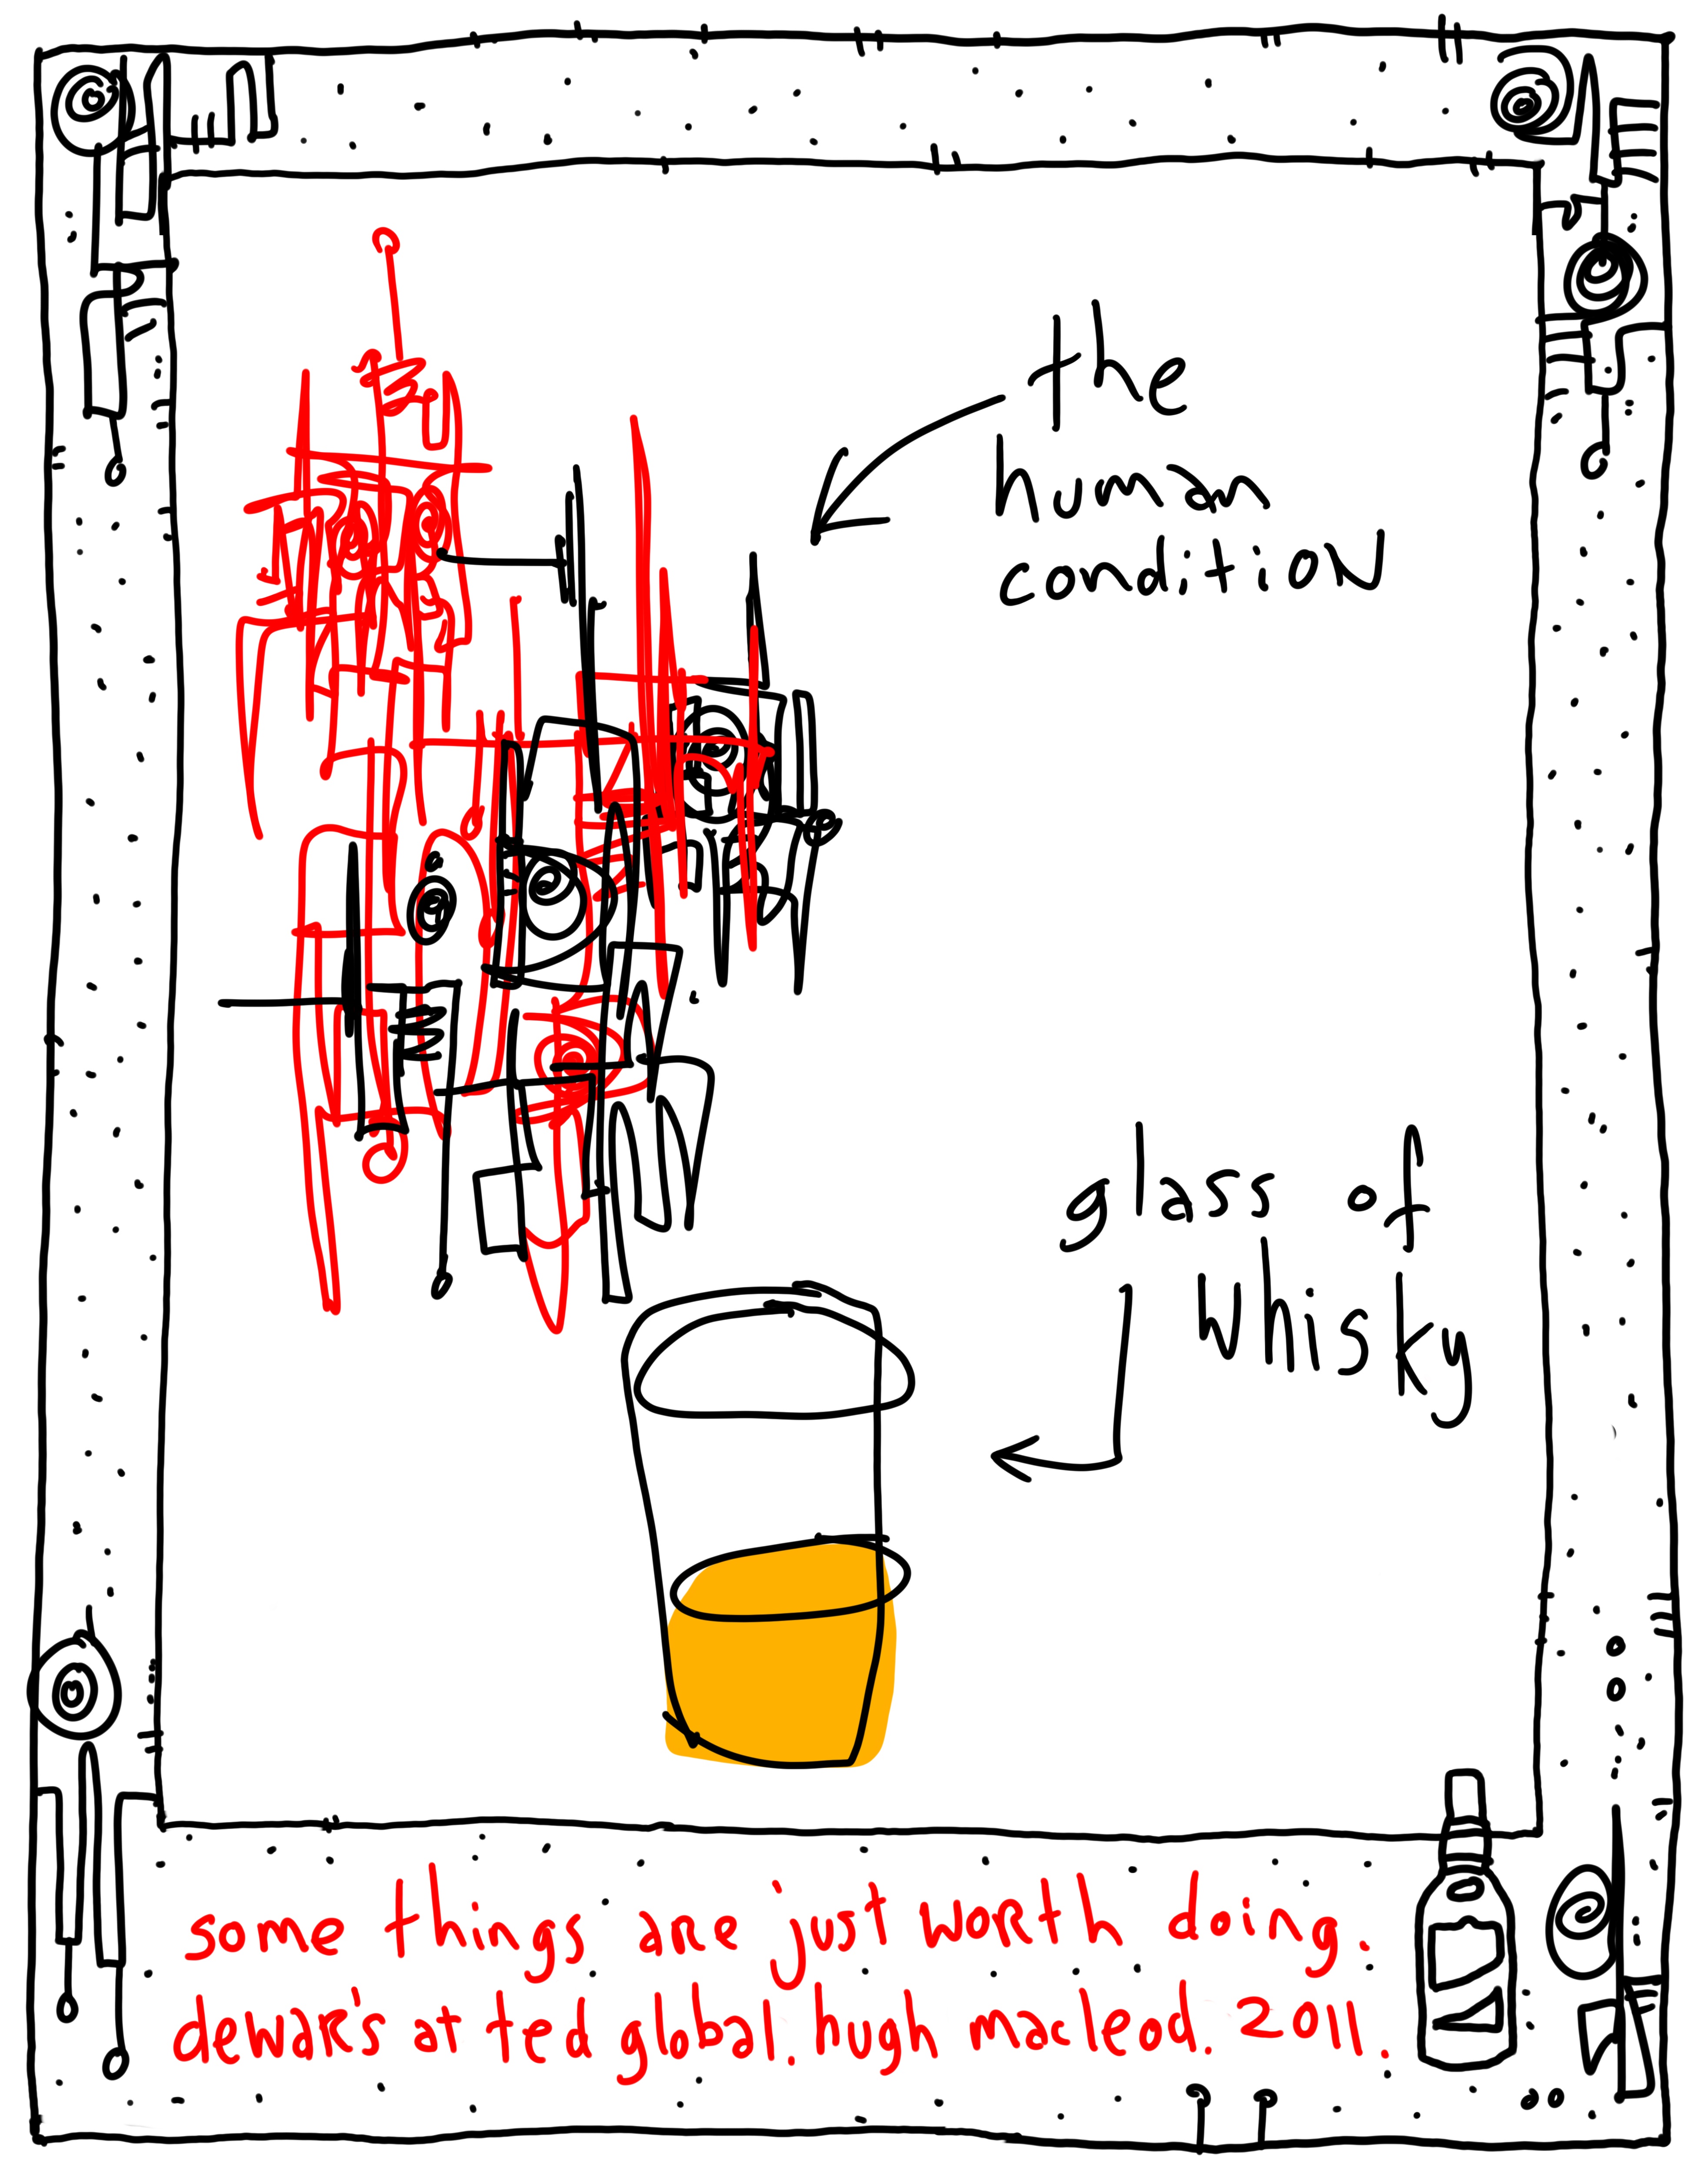 the
human
condition
glass of
whisky
some things are just worth doing.
dewar's at ted global. hugh macleod. 2011.